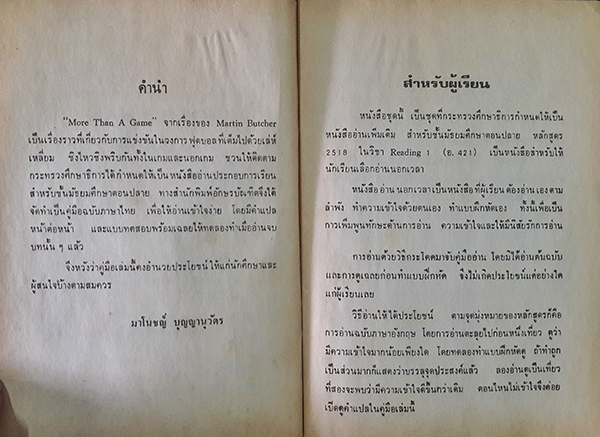 คำนำ
“More Than A Game” จากเรื่องของ Martin Butcher
เป็นเรื่องราวที่เกี่ยวกับการแข่งขันในวงการ ฟุตบอลที่เต็มไปด้วยเล่ห์
เหลี่ยม ชิงไหวชิงพริบกันทั้งในเกมและนอกเกม ชวนให้ติดตาม
กระทรวงศึกษาธิการได้กำหนดให้เป็นหนังสืออ่านประกอบการเรียน
สำหรับชั้นมัธยมศึกษาตอนปลาย ทางสำนักพิมพ์อักษรบัณฑิตจึงได้
จัดทำเป็นคู่มือฉบับภาษาไทย เพื่อให้อ่านเข้าใจง่าย โดยมีคำแปล
หน้าต่อหน้า และแบบทดสอบพร้อมเฉลยให้ทดลองทำเมื่ออ่านจบ
บทนั้น ๆ แล้ว
จึงหวังว่าคู่มือเล่มนี้คงอำนวยประโยชน์ให้แก่นักศึกษาและ
ผู้สนใจบ้างตามสมควร
มาโนชญ์ บุญญานุวัตร
สำหรับผู้เรียน
หนังสือชุดนี้ เป็นชุดที่กระทรวงศึกษาธิการกำหนดให้เป็น
หนังสืออ่านเพิ่มเติม สำหรับชั้นมัธยมศึกษาตอนปลาย หลักสูตร
2518 ในวิชา Reading 1 (อ. 421) เป็นหนังสือสำหรับให้
นักเรียนเลือกอ่านนอกเวลา
หนังสืออ่านนอกเวลาเป็นหนังสือที่ผู้เรียนต้องอ่านเองตาม
ลำพัง ทำความเข้าใจด้วยตนเอง ทำแบบฝึกหัดเอง ทั้งนี้เพื่อเป็น
การเพิ่มพูนทักษะด้านการอ่าน ความเข้าใจและให้มีนิสัยรักการอ่าน
การอ่านด้วยวิธีกระโดดมาจับคู่มืออ่าน โดยมิได้อ่านต้นฉบับ
และการดูเฉลยก่อนทำแบบฝึกหัด จึงไม่เกิดประโยชน์แต่อย่างใด
แก่ผู้เรียนเลย
วิธีอ่านให้ได้ประโยชน์ ตามจุดมุ่งหมายของหลักสูตรก็คือ
การอ่านฉบับภาษาอังกฤษ โดยการอ่านตะลุยไปก่อนหนึ่งเที่ยว ดูว่า
มีความเข้าใจมากน้อยเพียงใด โดยทดลองทำแบบฝึกหัดดู ถ้าทำถูก
เป็นส่วนมากก็แสดงว่าบรรลุจุดประสงค์แล้ว ลองอ่านดูเป็นเที่ยว
ที่สองจะพบว่ามีความเข้าใจดีขึ้นกว่าเดิม ตอนไหนไม่เข้าใจจึงค่อย
เปิดดูคำแปลในคู่มือเล่มนี้